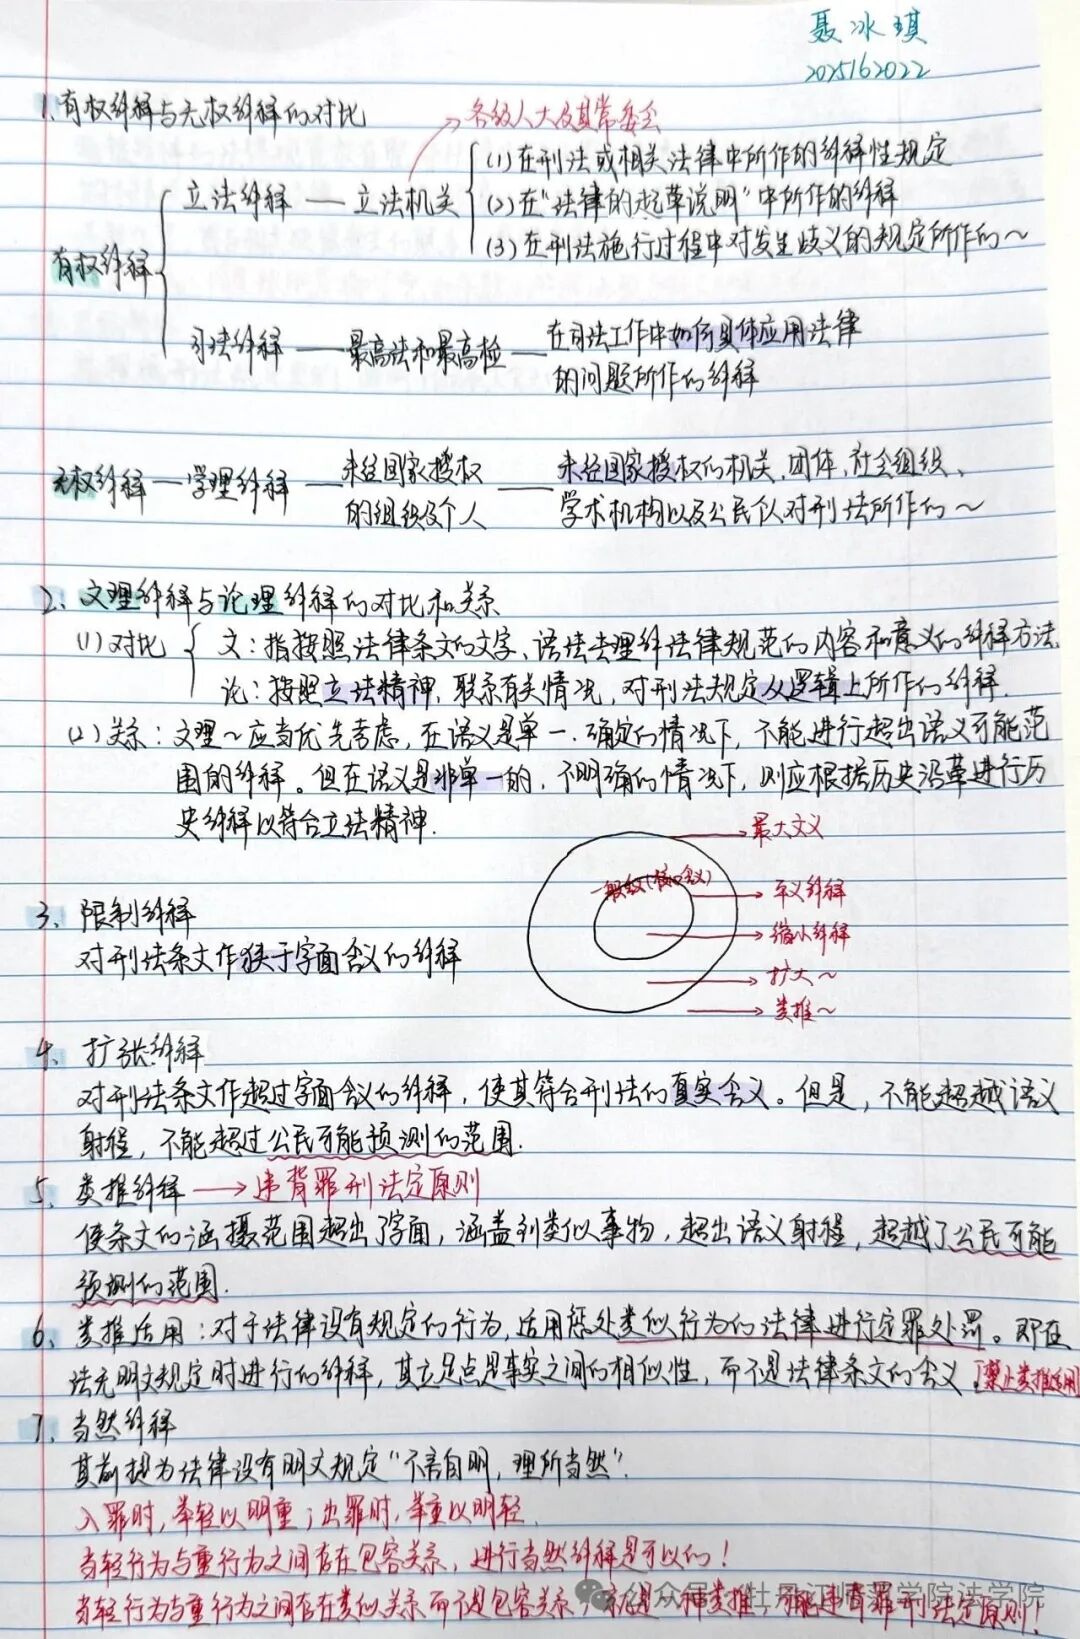 聂冰琪
2025162022
1.有权解释与无权解释的对比
各级人大及其常委会
立法解释 — 立法机关
(1)在刑法或相关法律中所作的解释性规定
(2)在"法律的起草说明"中所作的解释
(3)在刑法施行过程中对发生歧义的规定所作的~
有权解释
司法解释 — 最高法和最高检 — 在司法工作中如何具体应用法律
的问题所作的解释
无权解释 — 学理解释 — 未经国家授权
的组织及个人
未经国家授权的机关、团体、社会组织、
学术机构以及公民个人对刑法所作的~
2、文理解释与论理解释的对比和关系
(1)对比
文：指按照法律条文的文字、语法去理解法律规范的内容和意义的解释方法.
论：按照立法精神，联系有关情况，对刑法规定从逻辑上所作的解释.
(2)关系：文理~应当优先考虑，在语义是单一、确定的情况下，不能进行超出语义可能范
围的解释。但在语义是非单一的、不明确的情况下，则应根据历史沿革进行历
史解释以符合立法精神.
最大文义
一般文义(核心含义)
平义解释
缩小解释
扩大~
类推~
3、限制解释
对刑法条文作狭于字面含义的解释
4、扩张解释
对刑法条文作超过字面含义的解释，使其符合刑法的真实含义。但是，不能超越语义
射程，不能超过公民可能预测的范围.
5、类推解释 → 违背罪刑法定原则
使条文的涵摄范围超出了字面，涵盖到类似事物，超出语义射程，超越了公民可能
预测的范围.
6、类推适用：对于法律没有规定的行为，适用惩处类似行为的法律进行定罪处罚。即在
法无明文规定时进行的解释，其立足点是事实之间的相似性，而不是法律条文的含义.
禁止类推适用
7、当然解释
其前提为法律没有明文规定"不言自明，理所当然".
入罪时，举轻以明重；出罪时，举重以明轻.
当轻行为与重行为之间存在包容关系，进行当然解释是可以的！
当轻行为与重行为之间存在类似关系而不是包容关系，就是一种类推，可能违背罪刑法定原则！
公众号·牡丹江师范学院法学院